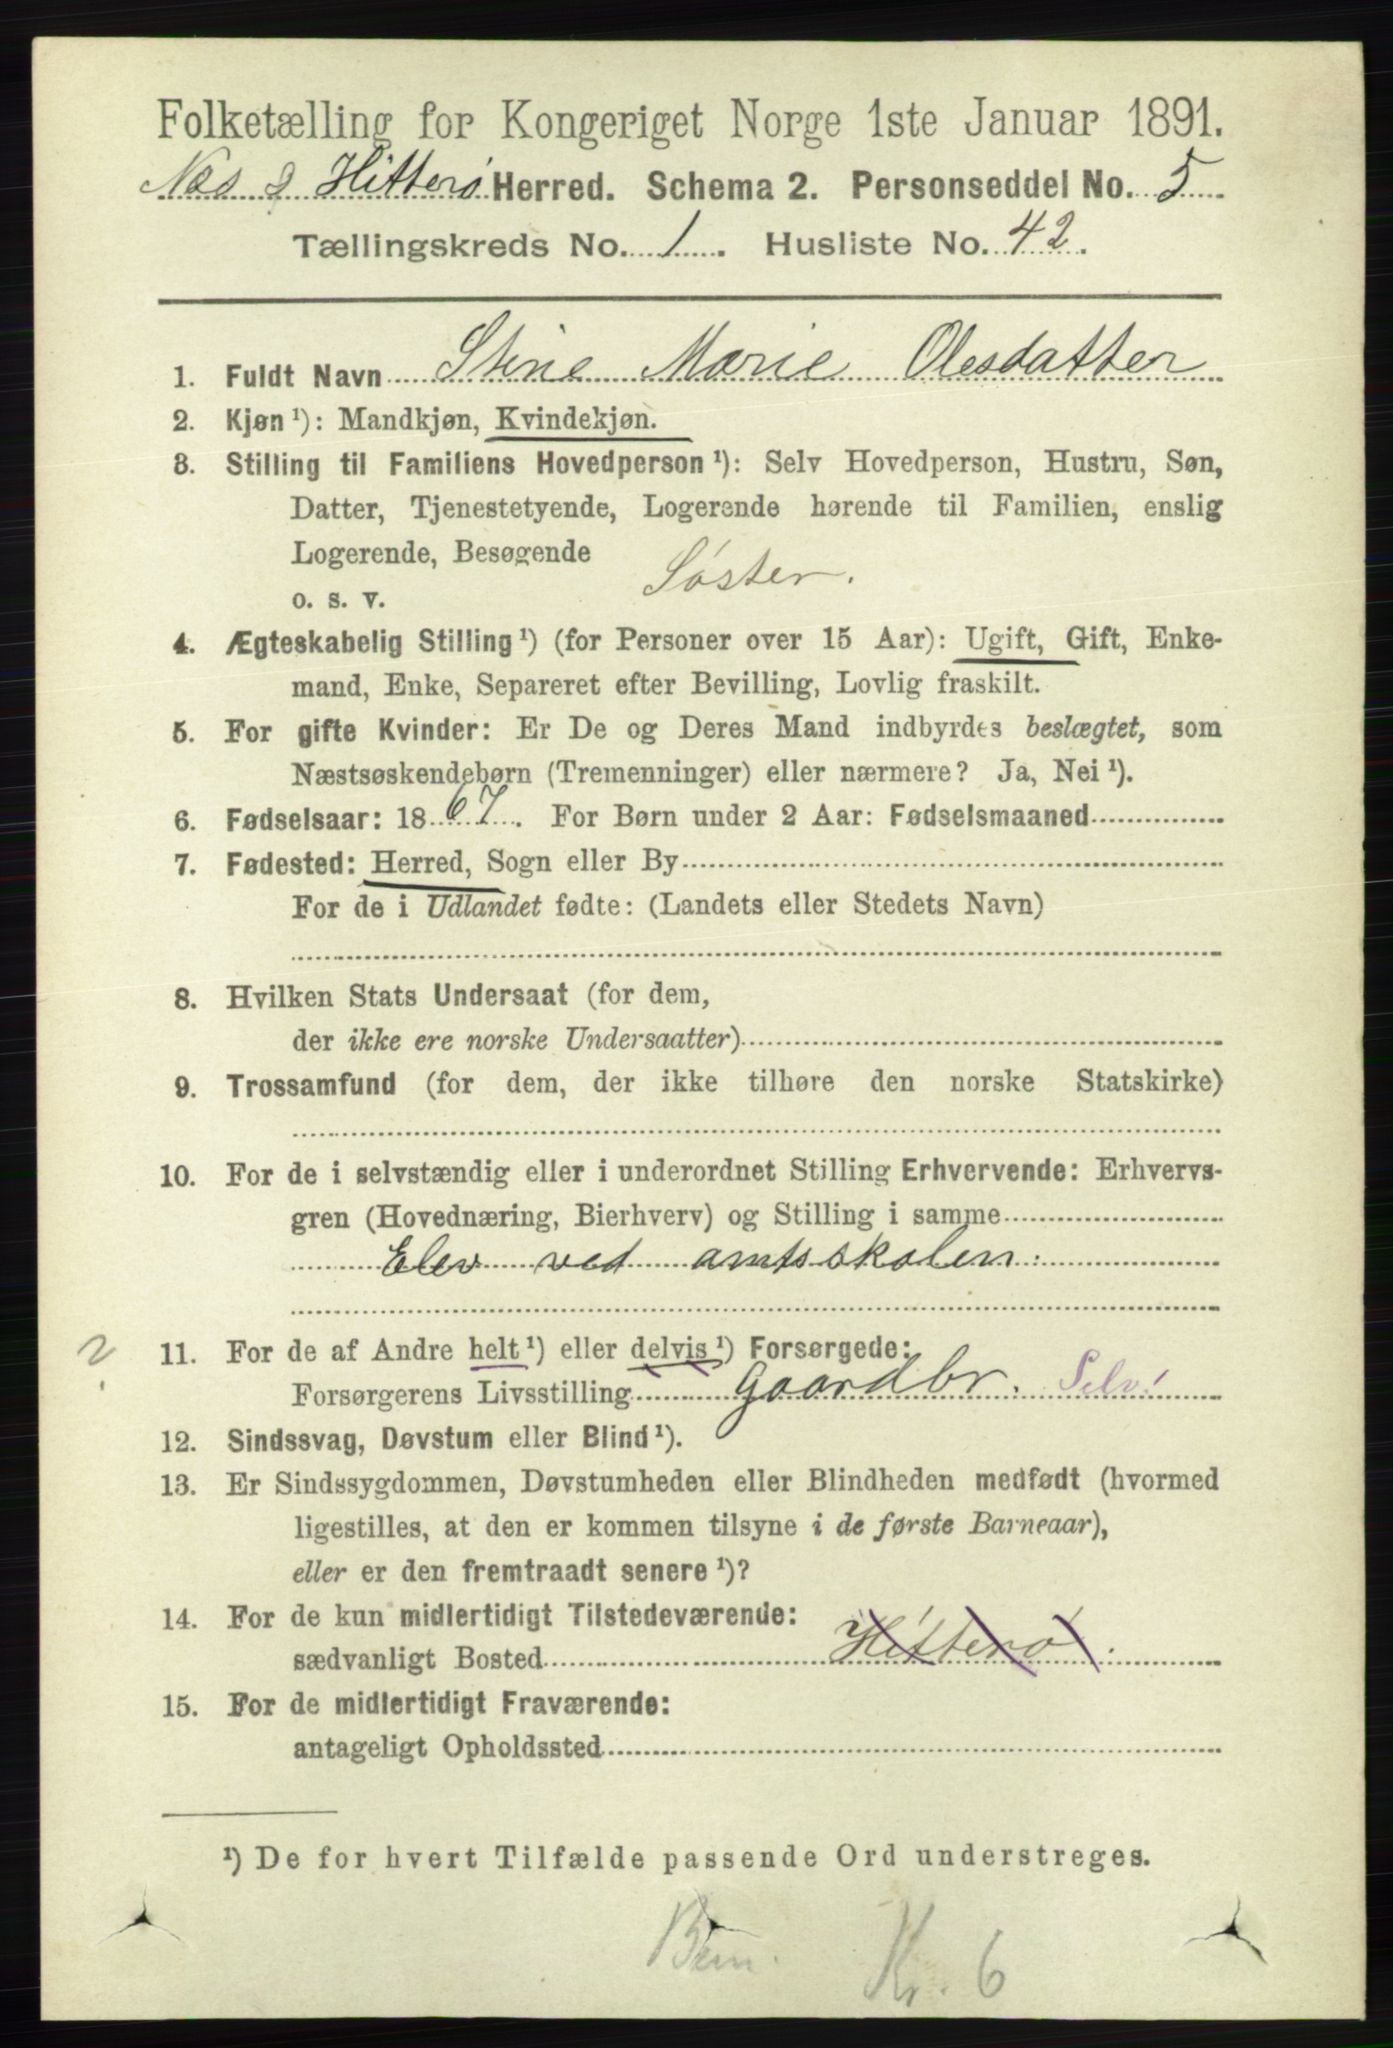 Folketælling for Kongeriget Norge 1ste Januar 1891.
Næs & Hitterø Herred. Schema 2. Personseddel No. 5
Tællingskreds No. 1. Husliste No. 42.
1. Fuldt Navn Stine Marie Olesdatter
2. Kjøn¹): Mandkjøn, Kvindekjøn.
3. Stilling til Familiens Hovedperson¹): Selv Hovedperson, Hustru, Søn,
Datter, Tjenestetyende, Logerende hørende til Familien, enslig
Logerende, Besøgende
o. s. v. Søster.
4. Ægteskabelig Stilling¹) (for Personer over 15 Aar): Ugift, Gift, Enke-
mand, Enke, Separeret efter Bevilling, Lovlig fraskilt.
5. For gifte Kvinder: Er De og Deres Mand indbyrdes beslægtet, som
Næstsøskendebørn (Tremenninger) eller nærmere? Ja, Nei¹).
6. Fødselsaar: 1867. For Børn under 2 Aar: Fødselsmaaned
7. Fødested: Herred, Sogn eller By
For de i Udlandet fødte: (Landets eller Stedets Navn)
8. Hvilken Stats Undersaat (for dem,
der ikke ere norske Undersaatter)
9. Trossamfund (for dem, der ikke tilhøre den norske Statskirke)
10. For de i selvstændig eller i underordnet Stilling Erhvervende: Erhvervs-
gren (Hovednæring, Bierhverv) og Stilling i samme
Elev ved amtsskolen.
? 11. For de af Andre helt¹) eller delvis¹) Forsørgede:
Forsørgerens Livsstilling Gaardbr. Selv!
12. Sindssvag, Døvstum eller Blind¹).
13. Er Sindssygdommen, Døvstumheden eller Blindheden medfødt (hvormed
ligestilles, at den er kommen tilsyne i de første Barneaar),
eller er den fremtraadt senere¹)?
14. For de kun midlertidigt Tilstedeværende:
sædvanligt Bosted Hitterø.
15. For de midlertidigt Fraværende:
antageligt Opholdssted
¹) De for hvert Tilfælde passende Ord understreges.
Bem. Kr. 6